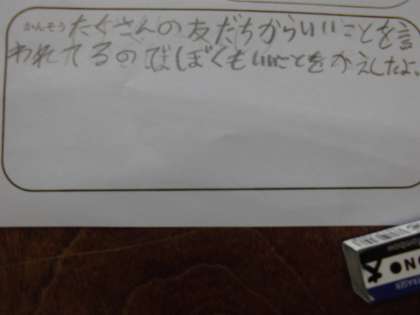 かんそう たくさんの友だちからいいことを言
われてるのでぼくもいいことをかえしたよ。